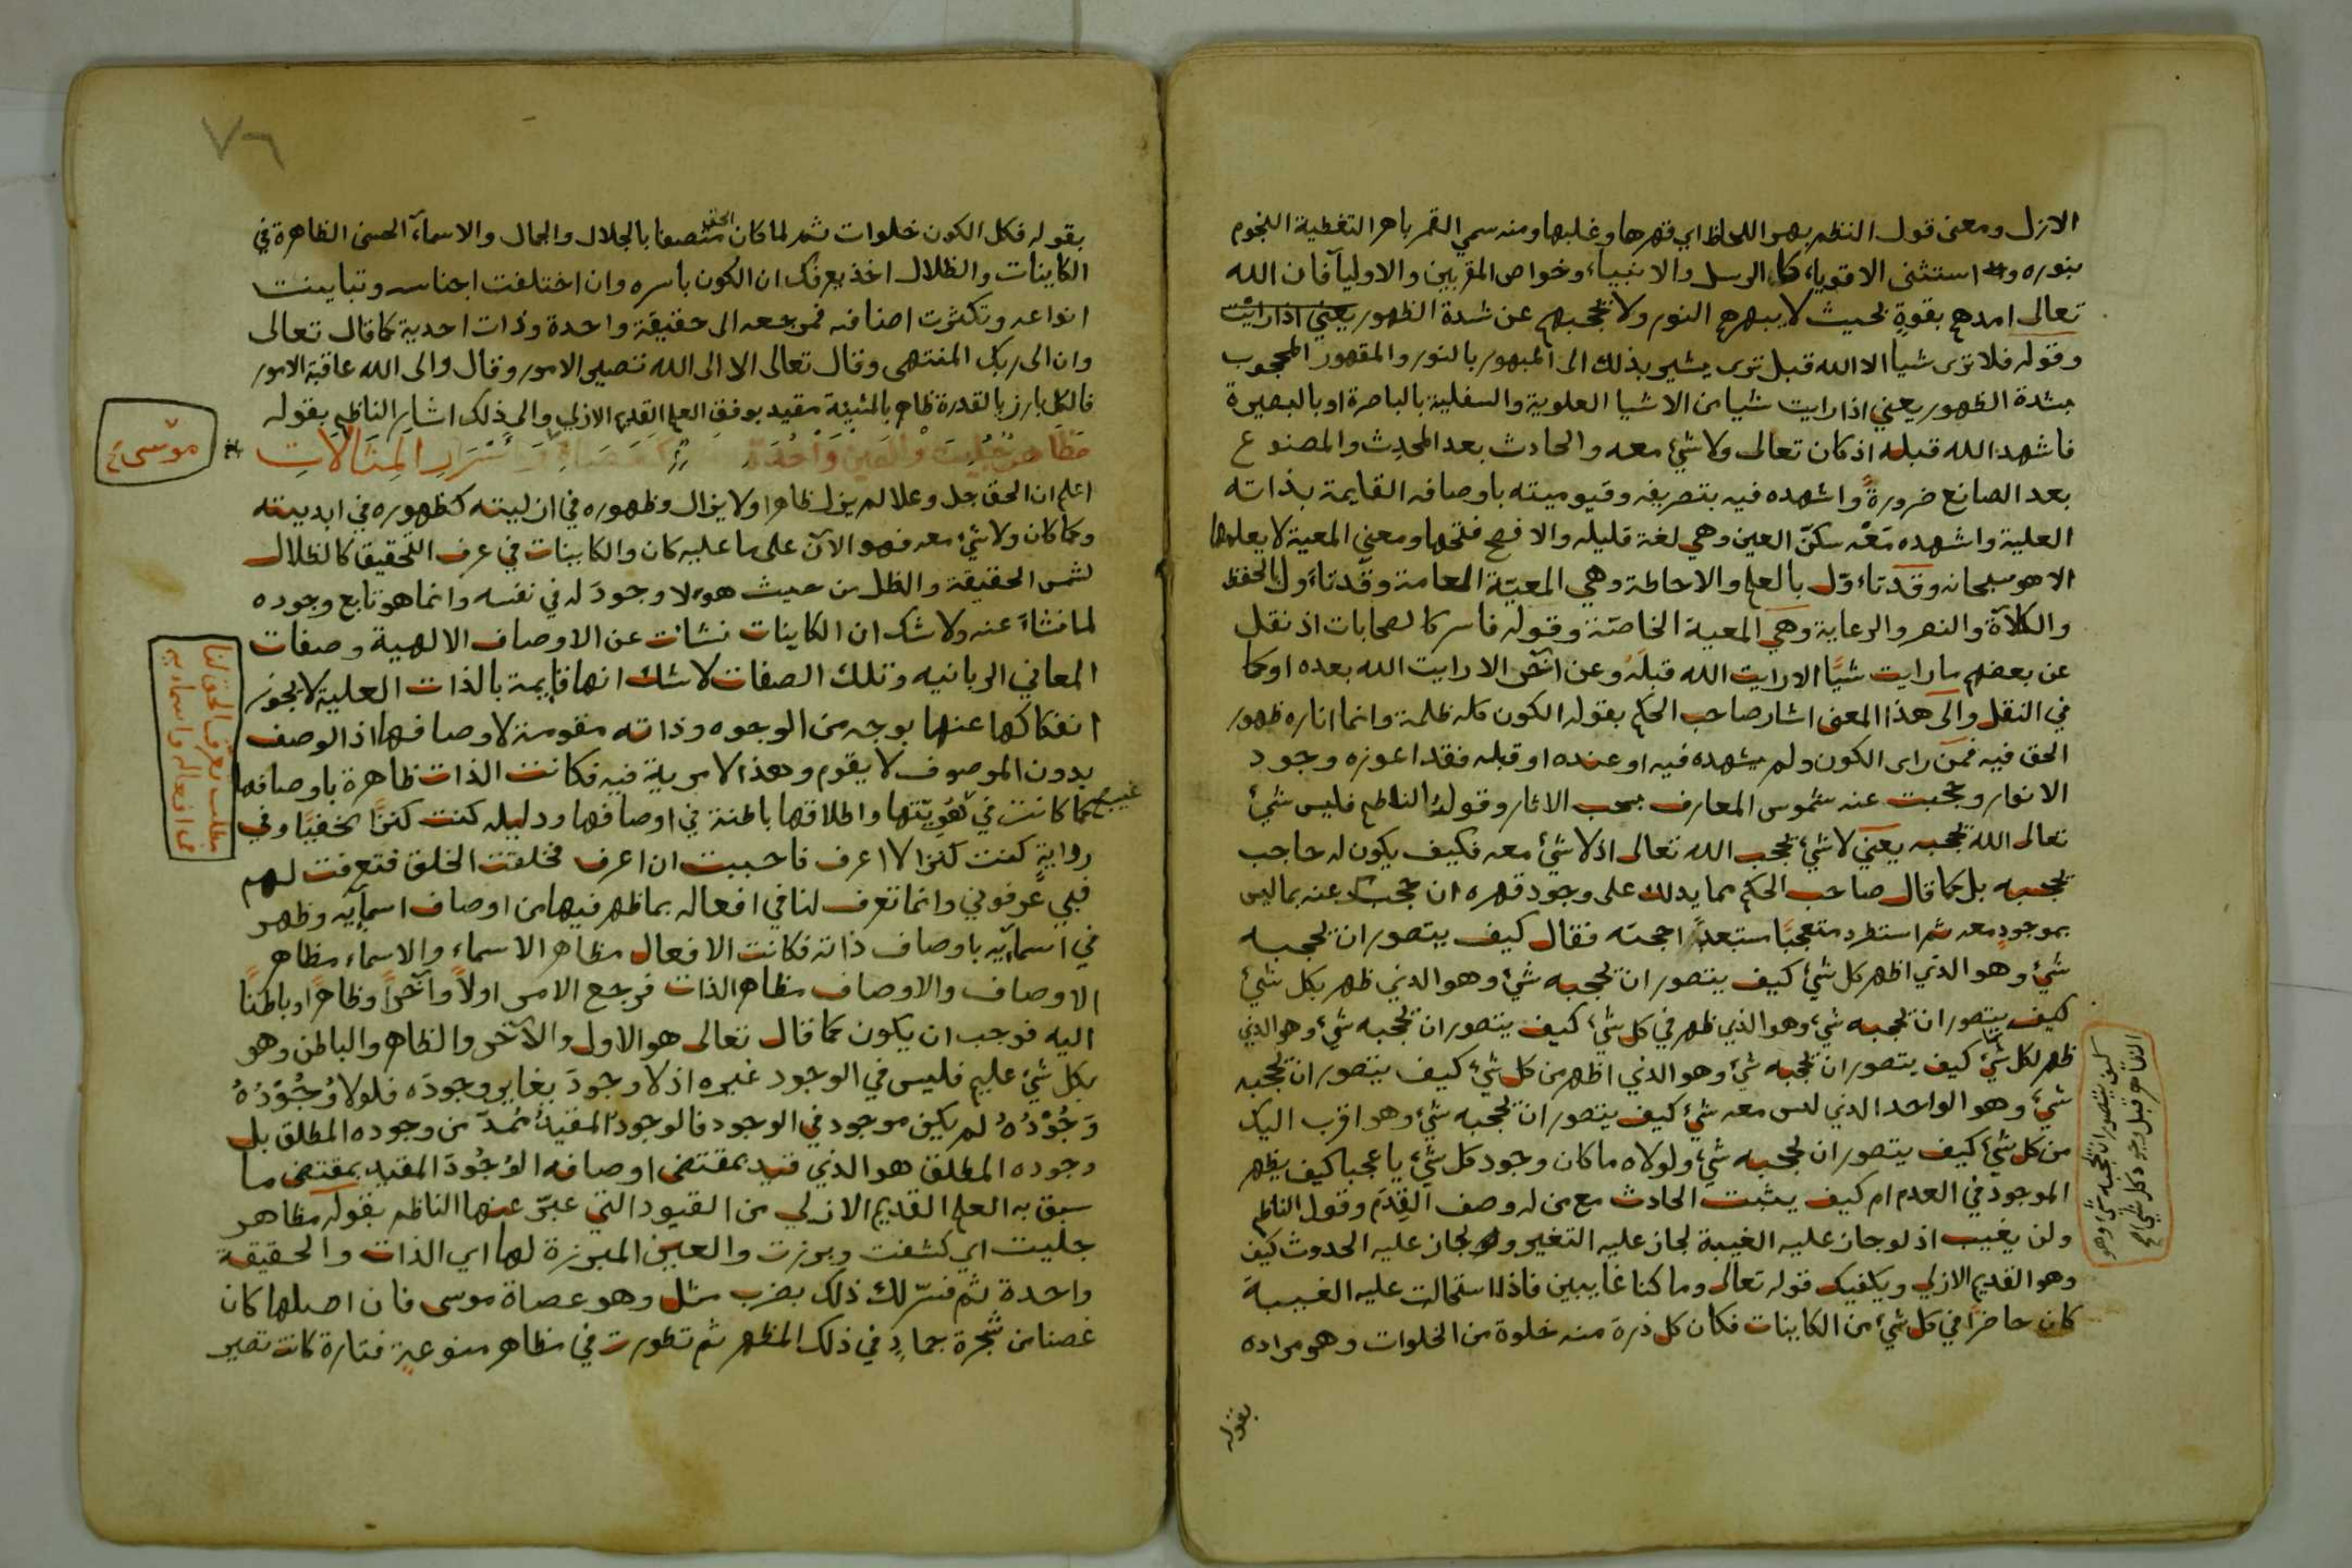 الازل ومعنى قول النظم بهر اللحاظ اي قهرها وغلبها ومنه سمي القمر باهر التغطية النجوم
بنوره و استثنى الاقوياء كالرسل والانبياء وخواص المقربين والاوليآ فان الله
تعالى امدهم بقوة بحيث لا يبهرهم النور ولا تحجبهم عن شدة الظهور يعني اذا رايت
وقوله فلا ترى شيا الا الله قبل ترى يشير بذلك الى المبهور بالنور والمقهور المحجوب
بشدة الظهور يعني اذا رايت شيا من الاشيا العلوية والسفلية بالباصرة او بالبصيرة
فاشهد الله قبله اذ كان تعالى ولا شئ معه والحادث بعد المحدث والمصنوع
بعد الصانع ضرورةً واشهده فيه بتصريفه وقيوميته باوصافه القايمة بذاته
العلية واشهده مَعْه سكنّ العين وهي لغة قليله والافصح فتحها ومعنى المعية لا يعلمها
الا هو سبحانه وقد تاءوّل بالعلم والاحاطة وهي المعيّة العامة وقد تاءول بالحفظ
والكلآة والنصر والرعاية وهي المعية الخاصّة وقوله فاسر كالصحابات اذ نقل
عن بعضهم ما رايت شيًّا الا رايت الله قبلَهُ وعن اخر الا رايت الله بعده او كما
في النقل والى هذا المعنى اشار صاحب الحكم بقوله الكون كله ظلمة وانما اناره ظهور
الحق فيه فمن راى الكون ولم يشهده فيه او عنده او قبله فقد اعوزه وجود
الانوار وحجبت عنه شموس المعارف بسحب الاثار وقوله الناظم فليس شئ
تعالى الله يحجبه يعني لا شئ يحجب الله تعالى اذ لا شئ معه فكيف يكون له حاجب
يحجبه بل كما قال صاحب الحكم مما يدلك على وجود قهره ان حجبك عنه بما ليس
بموجود معه ثم استطرد متعجبًا مستبعدًا حجته فقال كيف يتصور ان يحجبه
شئ وهو الذي اظهر كل شئ كيف يتصور ان يحجبه شئ وهو الذي ظهر بكل شئ
كيف يتصور ان يحجبه شئ وهو الذي ظهر في كل شئ كيف يتصور ان يحجبه شئ وهو الذي
ظهر لكل شئ كيف يتصور ان يحجبه شئ وهو الذي اظهر من كل شئ كيف يتصور ان يحجبه
شئ وهو الواحد الذي ليس معه شئ كيف يتصور ان يحجبه شئ وهو اقرب اليك
من كل شئ كيف يتصور ان يحجبه شئ ولولاه ما كان وجود كل شئ يا عجبا كيف يظهر
الموجود في العدم ام كيف يثبت الحادث مع من له وصف القِدَم وقول الناظم
ولن يغيب اذ لو جاز عليه الغيبة لجاز عليه التغير ولو لجاز عليه الحدوث كيف
وهو القديم الازلي ويكفيك قوله تعالى وما كنا غايبين فاذا استحالت عليه الغيبة
كان حاضرًا في كل شئ من الكاينات فكان كل ذرة منه خلوة من الخلوات وهو مراده
بقوله
كيف يتصور ان يحجبه شئ وهو
الظاهر قبل وجود كل شئ صح
٧٦
بقوله فكل الكون خلوات ثم لما كان الحق متصفا بالجلال والجمال والاسمآء الحسنى الظاهرة في
الكاينات والظلال اخذ يعرفك ان الكون باسره وان اختلفت اجناسه وتباينت
انواعه وتكثرت اصنافه فمرجعه الى حقيقة واحدة وذات احدية كما قال تعالى
وان الى ربك المنتهى وقال تعالى الا الى الله تصير الامور وقال والى الله عاقبة الامور
فالكل بارز بالقدرة ظاهر بالمشيئة مقيد بوفق العلم القديم الازلي والى ذلك اشار الناظم بقوله
مَظَاهِرٌ جُلِيَت وَالعَينُ وَاحِدَة كَعَصَاةِ سَرَدِ المِثَالاتِ
موسى
اعلم ان الحق جل وعلا لم يزل ظاهرا ولا يزال وظهوره في ازليته كظهوره في ابديته
وكما كان ولا شئ معه فهو الآن على ما عليه كان والكاينات في عرف التحقيق كالظلال
لشمس الحقيقة والظل من حيث هو لا وجودَ له في نفسه وانما هو تابع وجوده
لما نشاءَ عنه ولا شك ان الكاينات نشات عن الاوصاف الالهية وصفات
المعاني الربانيه وتلك الصفات لا شك انها قايمة بالذات العلية لا يجوز
انفكاكها عنها بوجه من الوجوه وذاته مقومة لاوصافها اذ الوصف
بدون الموصوف لا يقوم وهذا لا مرية فيه فكانت الذات ظاهرة باوصافها
كما كانت في غيب هُوِيّتها واطلاقها باطنة في اوصافها ودليله كنت كنزًا مخفيًا وفي
رواية كنت كنزا لا اعرف فاحببت ان اعرف فخلقت الخلق فتعرفت لهم
فبي عرفوني وانما تعرف لنا في افعاله بما ظهر فيها من اوصاف اسمايه وظهر
في اسمايه باوصاف ذاته فكانت الافعال مظاهر الاسماء والاسماء مظاهر
الاوصاف والاوصاف مظاهر الذات فرجع الامر اولاً وآخرًا وظاهرًا وباطنًا
اليه فوجب ان يكون كما قال تعالى هو الاول والآخر والظاهر والباطن وهو
بكل شئ عليم فليس في الوجود غيره اذ لا وجودَ يغاير وجودَه فلولا وُجُوْدُهُ
وَجُوْدُهُ لم يكن موجود في الوجود فالوجود المقيدُ مُمدّ من وجوده المطلق بل
وجوده المطلق هو الذي قيد بمقتضى اوصافه الوُجُودَ المقيد بمقتضى ما
سبق به العلم القديم الازلي من القيود التي عبّر عنها الناظم بقوله مظاهر
جليت اي كشفت وبرزت والعين المبرزة لها اي الذات والحقيقة
واحدة ثم فسّر لك ذلك بضرب مثل وهو عصاة موسى فان اصلها كان
غصنا من شجرة جمادٍ في ذلك المظهر ثم تطورت في مظاهر منوعة فتارة كانت تصير
مطلب تعرف الحق لنا
من افعاله واسمايه